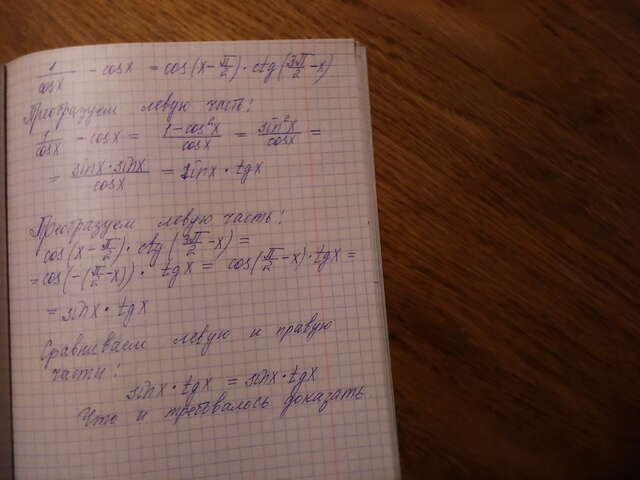 1/cosx - cosx = cos(x - π/2) · ctg(3π/2 - x)
Преобразуем левую часть:
1/cosx - cosx = 1-cos²x/cosx = sin²x/cosx =
= sinx·sinx/cosx = sinx · tgx
Преобразуем левую часть:
cos(x - π/2) · ctg(3π/2 - x) =
= cos(-(π/2 - x)) · tgx = cos(π/2 - x) · tgx =
= sinx · tgx
Сравниваем левую и правую
части:
sinx · tgx = sinx · tgx
Что и требовалось доказать.